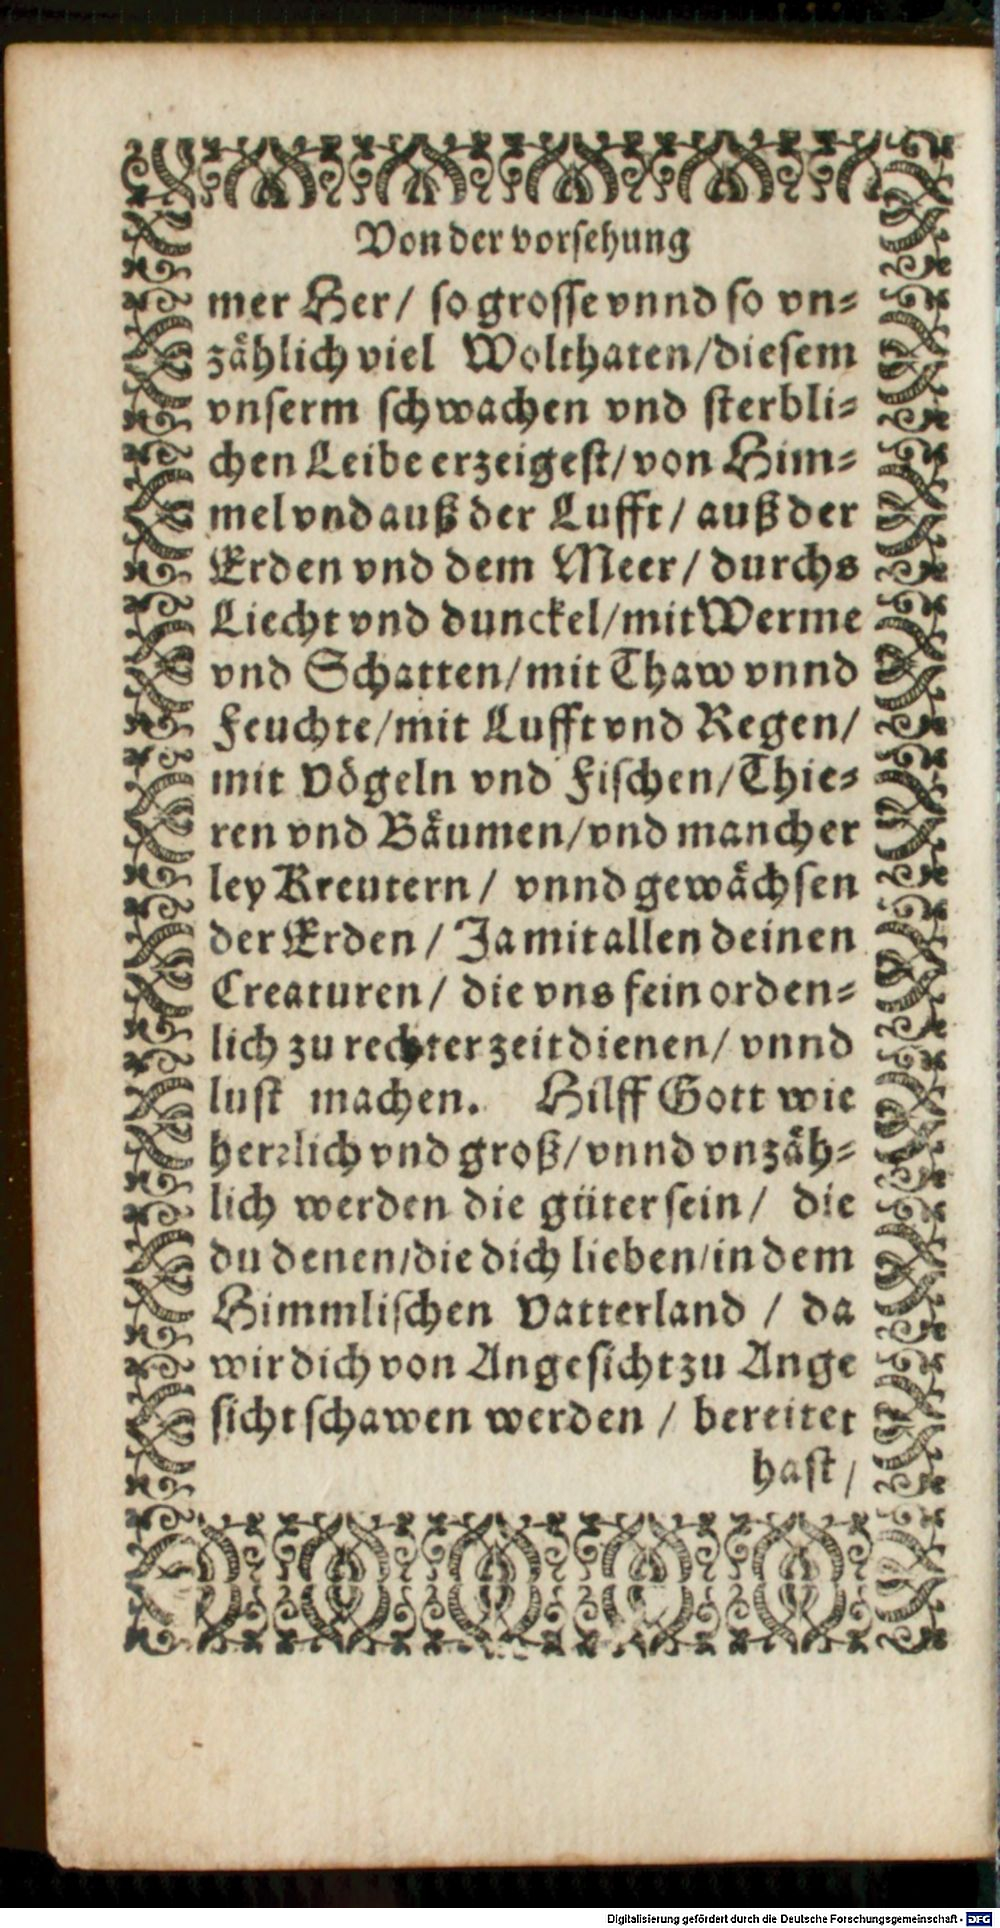 Von der vorsehung
mer Her/ so grosse vnnd so vn-
zåhlich viel Wolthaten/diesem
vnserm schwachen vnd sterbli-
chen Leibe erzeigest/von Him-
mel vnd auß der Lufft/ auß der
Erden vnd dem Meer/ durchs
Liecht vnd dunckel/mit Werme
vnd Schatten/mit Thaw vnnd
Feuchte/mit Lufft vnd Regen/
mit Vögeln vnd Fischen/Thie-
ren vnd Båumen/vnd mancher
ley Kreutern/ vnnd gewåchsen
der Erden/ Ja mit allen deinen
Creaturen/ die vns fein orden-
lich zu rechter zeit dienen/ vnnd
lust machen. Hilff Gott wie
herrlich vnd groß/vnnd vnzåh-
lich werden die güter sein/ die
du denen/die dich lieben/in dem
Himmlischen Vatterland / da
wir dich von Angesicht zu Ange
sicht schawen werden / bereitet
hast/
Digitalisierung gefördert durch die Deutsche Forschungsgemeinschaft - DFG